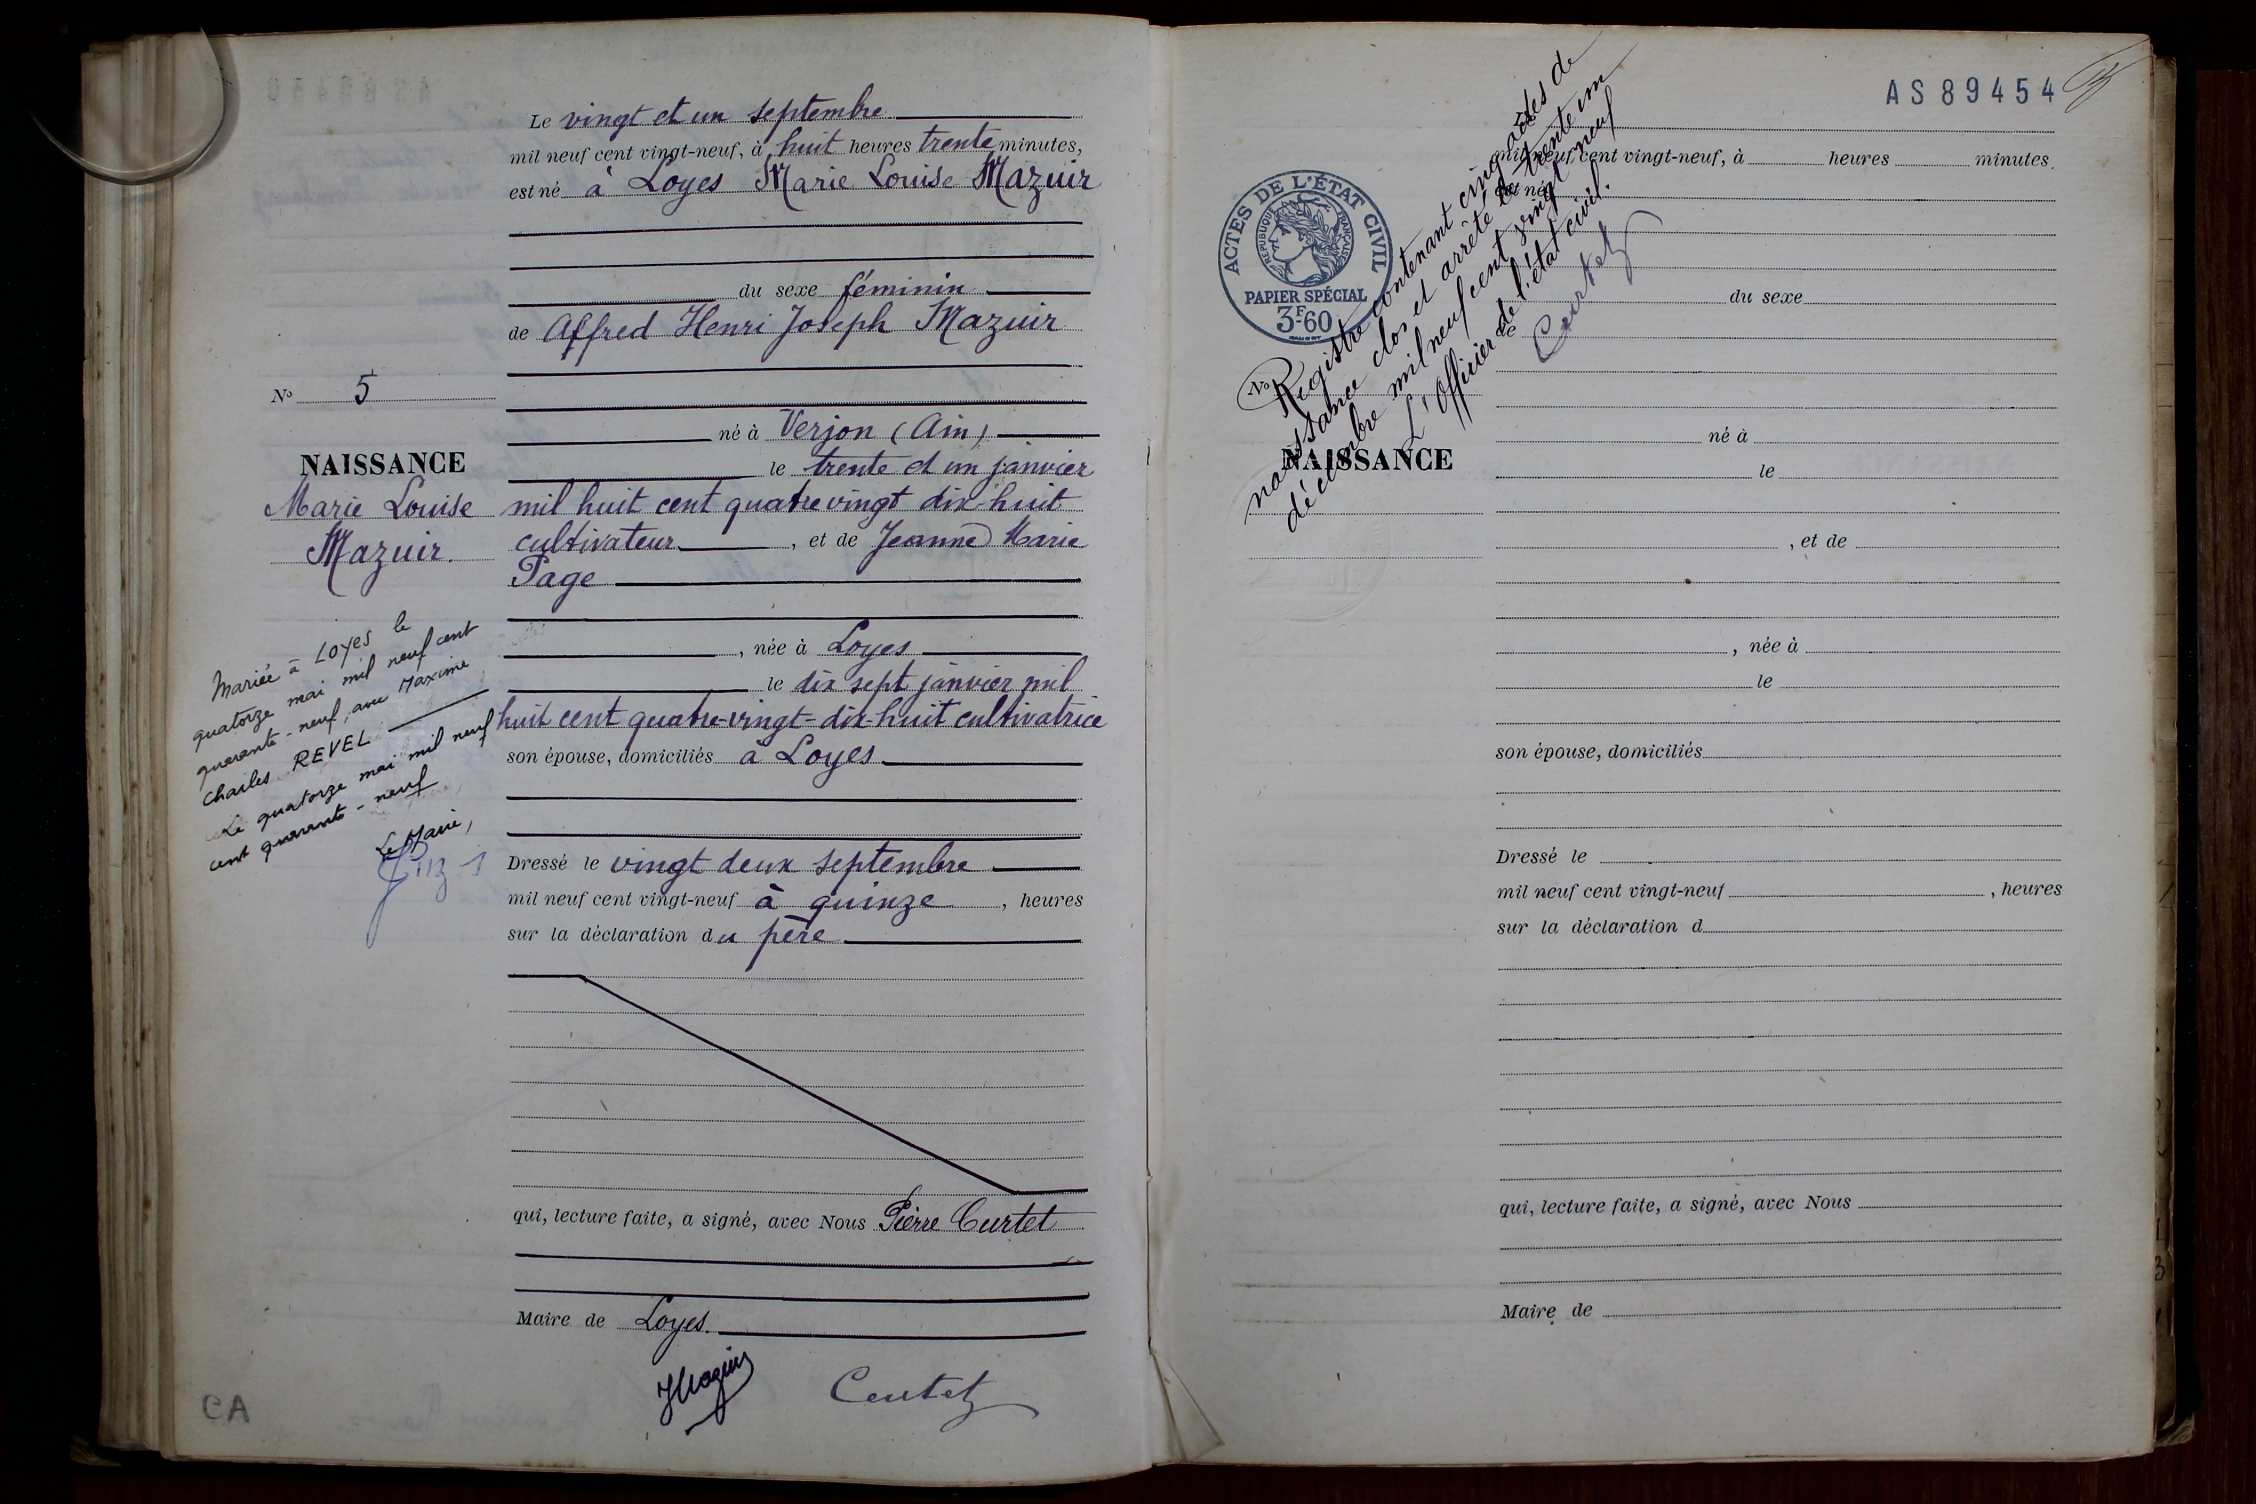 Le vingt et un septembre
mil neuf cent vingt-neuf, à huit heures trente minutes,
est né à Loyes Marie Louise Mazuir
du sexe féminin
de Alfred Henri Joseph Mazuir
No 5
né à Verjon (Ain)
NAISSANCE
le trente et un janvier
Marie Louise
mil huit cent quatre vingt dix-huit
Mazuir.
cultivateur, et de Jeanne Marie
Page
, née à Loyes
le dix sept janvier mil
huit cent quatre-vingt-dix-huit cultivatrice
son épouse, domiciliés à Loyes
Mariée à LOYES le
quatorze mai mil neuf cent
quarante-neuf, avec Maxime
Charles REVEL
Le quatorze mai mil neuf
cent quarante-neuf
Le Maire,
Dressé le vingt deux septembre
mil neuf cent vingt-neuf à quinze, heures
sur la déclaration du père
qui, lecture faite, a signé, avec Nous Pierre Curtet
Maire de Loyes.
Curtet
CA
AS89454
mil neuf cent vingt-neuf, à heures minutes.
est né
ACTES DE L'ÉTAT CIVIL
RÉPUBLIQUE FRANÇAISE
PAPIER SPÉCIAL
3F.60
du sexe
de
Registre contenant cinq actes de
naissance clos et arrêté le trente un
décembre mil neuf cent vingt neuf
L'Officier de l'état civil.
Curtet
No
né à
NAISSANCE
le
, et de
, née à
le
son épouse, domiciliés
Dressé le
mil neuf cent vingt-neuf , heures
sur la déclaration d
qui, lecture faite, a signé, avec Nous
Maire de